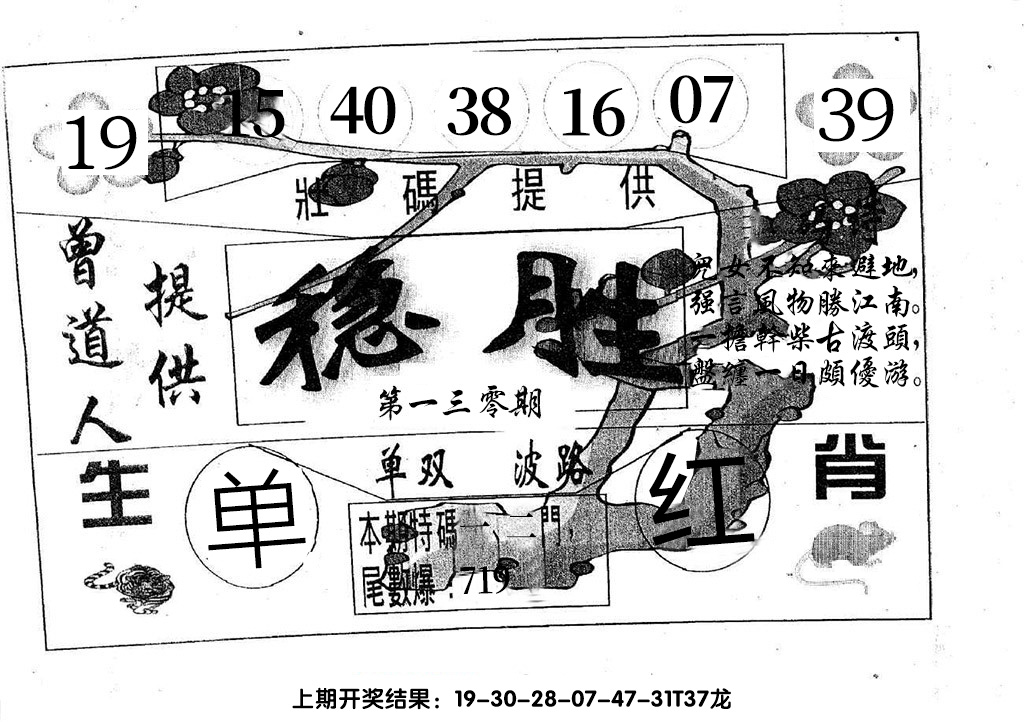 19 15 40 38 16 07 39
壯碼提供
曾道人
提供
稳胜
第一三零期
兒女不知來避地,
强信風物勝江南。
一擔幹柴古渡頭,
盤纏一日頗優游。
单双 波路
生肖
单
红
本期特碼一、二門,
尾數爆:719
上期开奖结果:19-30-28-07-47-31T37龙